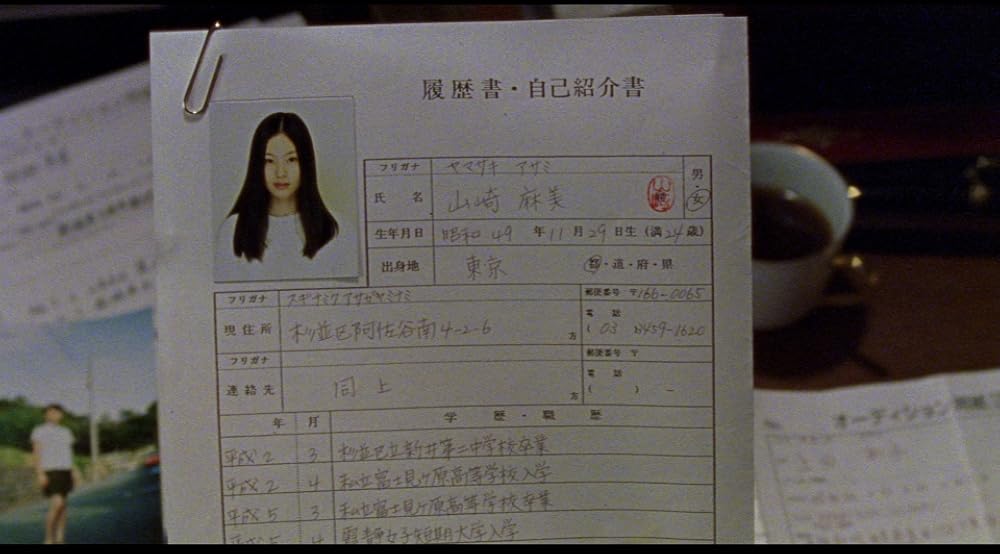 履歴書・自己紹介書
フリガナ ヤマザキ アサミ
氏 名 山崎 麻美
男・女
生年月日 昭和 49 年 11 月 29 日生 (満 24 歳)
出身地 東京 都・道・府・県
フリガナ スギナミクアサガヤミナミ
郵便番号 〒166-0065
現住所 杉並区阿佐谷南4-2-6 方
電 話 (03)3459-1620
フリガナ
郵便番号 〒
連絡先 同上 方
電 話 ( ) －
年 月 学 歴・職 歴
平成2 3 杉並区立新井第二中学校卒業
平成2 4 私立富士見ヶ原高等学校入学
平成5 3 私立富士見ヶ原高等学校卒業
平成5 4 女子短期大学入学
オーディション